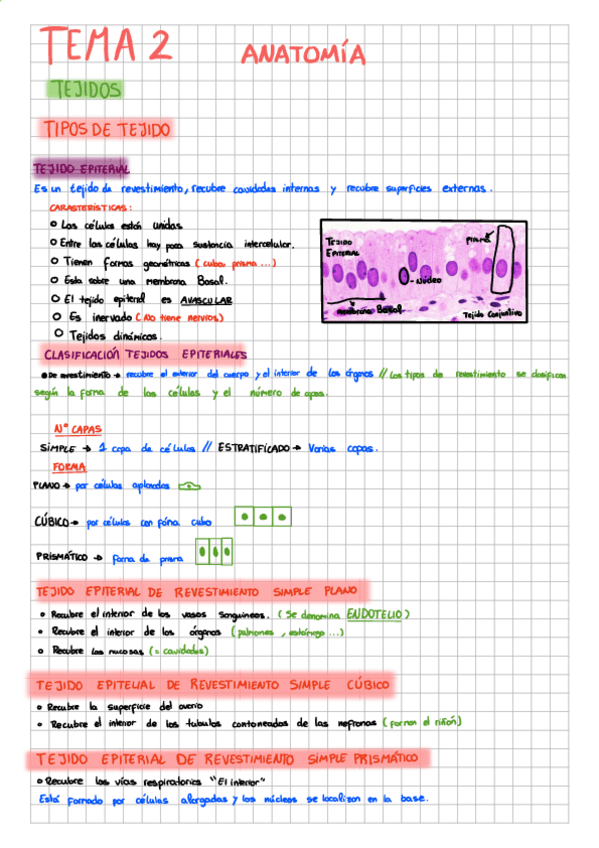 TEMA 2 ANATOMÍA
TEJIDOS
TIPOS DE TEJIDO
TEJIDO EPITERIAL
Es un tejido de revestimiento, recubre cavidades internas y recubre superficies externas.
CARASTERÍSTICAS:
Las células están unidas
Entre las células hay poca sustancia intercelular.
Tienen formas geométricas (cubo, prisma ...)
Esta sobre una membrana Basal.
El tejido epiteral es AVASCULAR
Es inervado (No tiene nervios)
Tejidos dinámicos.
TEJIDO
EPITERIAL
prisma
Núcleo
membrana Basal
Tejido Conjuntivo
CLASIFICACIÓN TEJIDOS EPITERIALES
De revestimiento → recubre el exterior del cuerpo y el interior de los órganos // Los tipos de revestimiento se clasifican
según la forma de las células y el número de capas.
Nº CAPAS
SIMPLE → 1 capa de células // ESTRATIFICADO → Varias capas.
FORMA
PLANO → por células aplanadas
CÚBICO → por células con forma cubo
PRISMÁTICO → forma de prisma
TEJIDO EPITERIAL DE REVESTIMIENTO SIMPLE PLANO
Recubre el interior de los vasos sanguíneos. (Se denomina ENDOTELIO)
Recubre el interior de los órganos (pulmones, estómago ...)
Recubre las mucosas (= cavidades)
TEJIDO EPITELIAL DE REVESTIMIENTO SIMPLE CÚBICO
Recubre la superficie del ovario
Recubre el interior de los tubulos contoneados de las nefronas (forman el riñón)
TEJIDO EPITERIAL DE REVESTIMIENTO SIMPLE PRISMÁTICO
Recubre las vías respiratorias "El interior"
Está formado por células alargadas y los núcleos se localizan en la base.